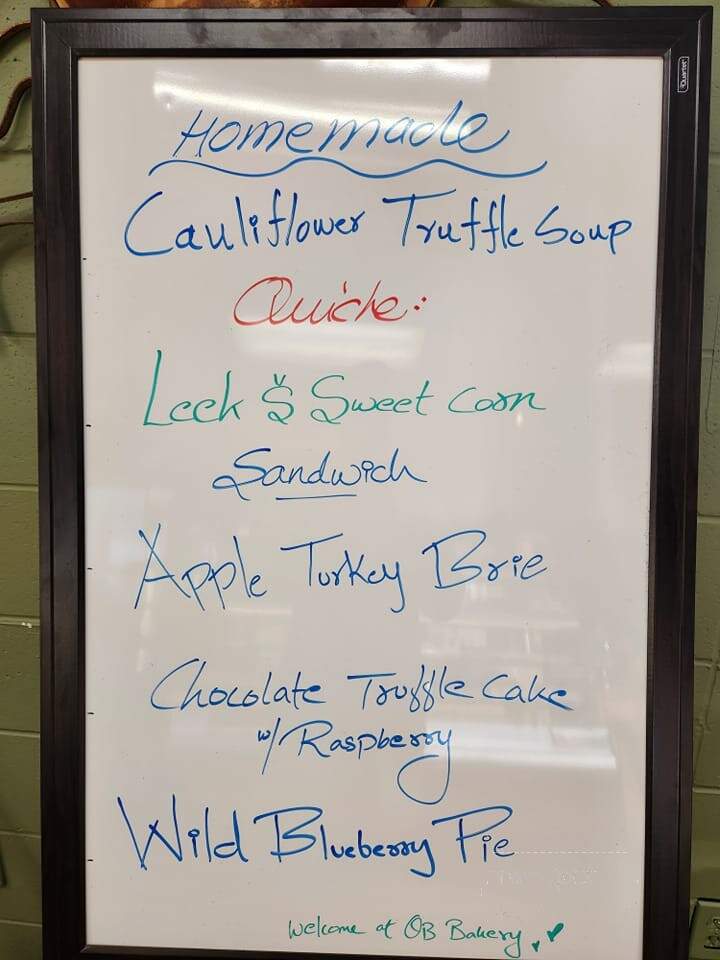 Quartet
Homemade
Cauliflower Truffle Soup
Quiche:
Leek & Sweet Corn
Sandwich
Apple Turkey Brie
Chocolate Truffle Cake
w/ Raspberry
Wild Blueberry Pie
Welcome at OB Bakery